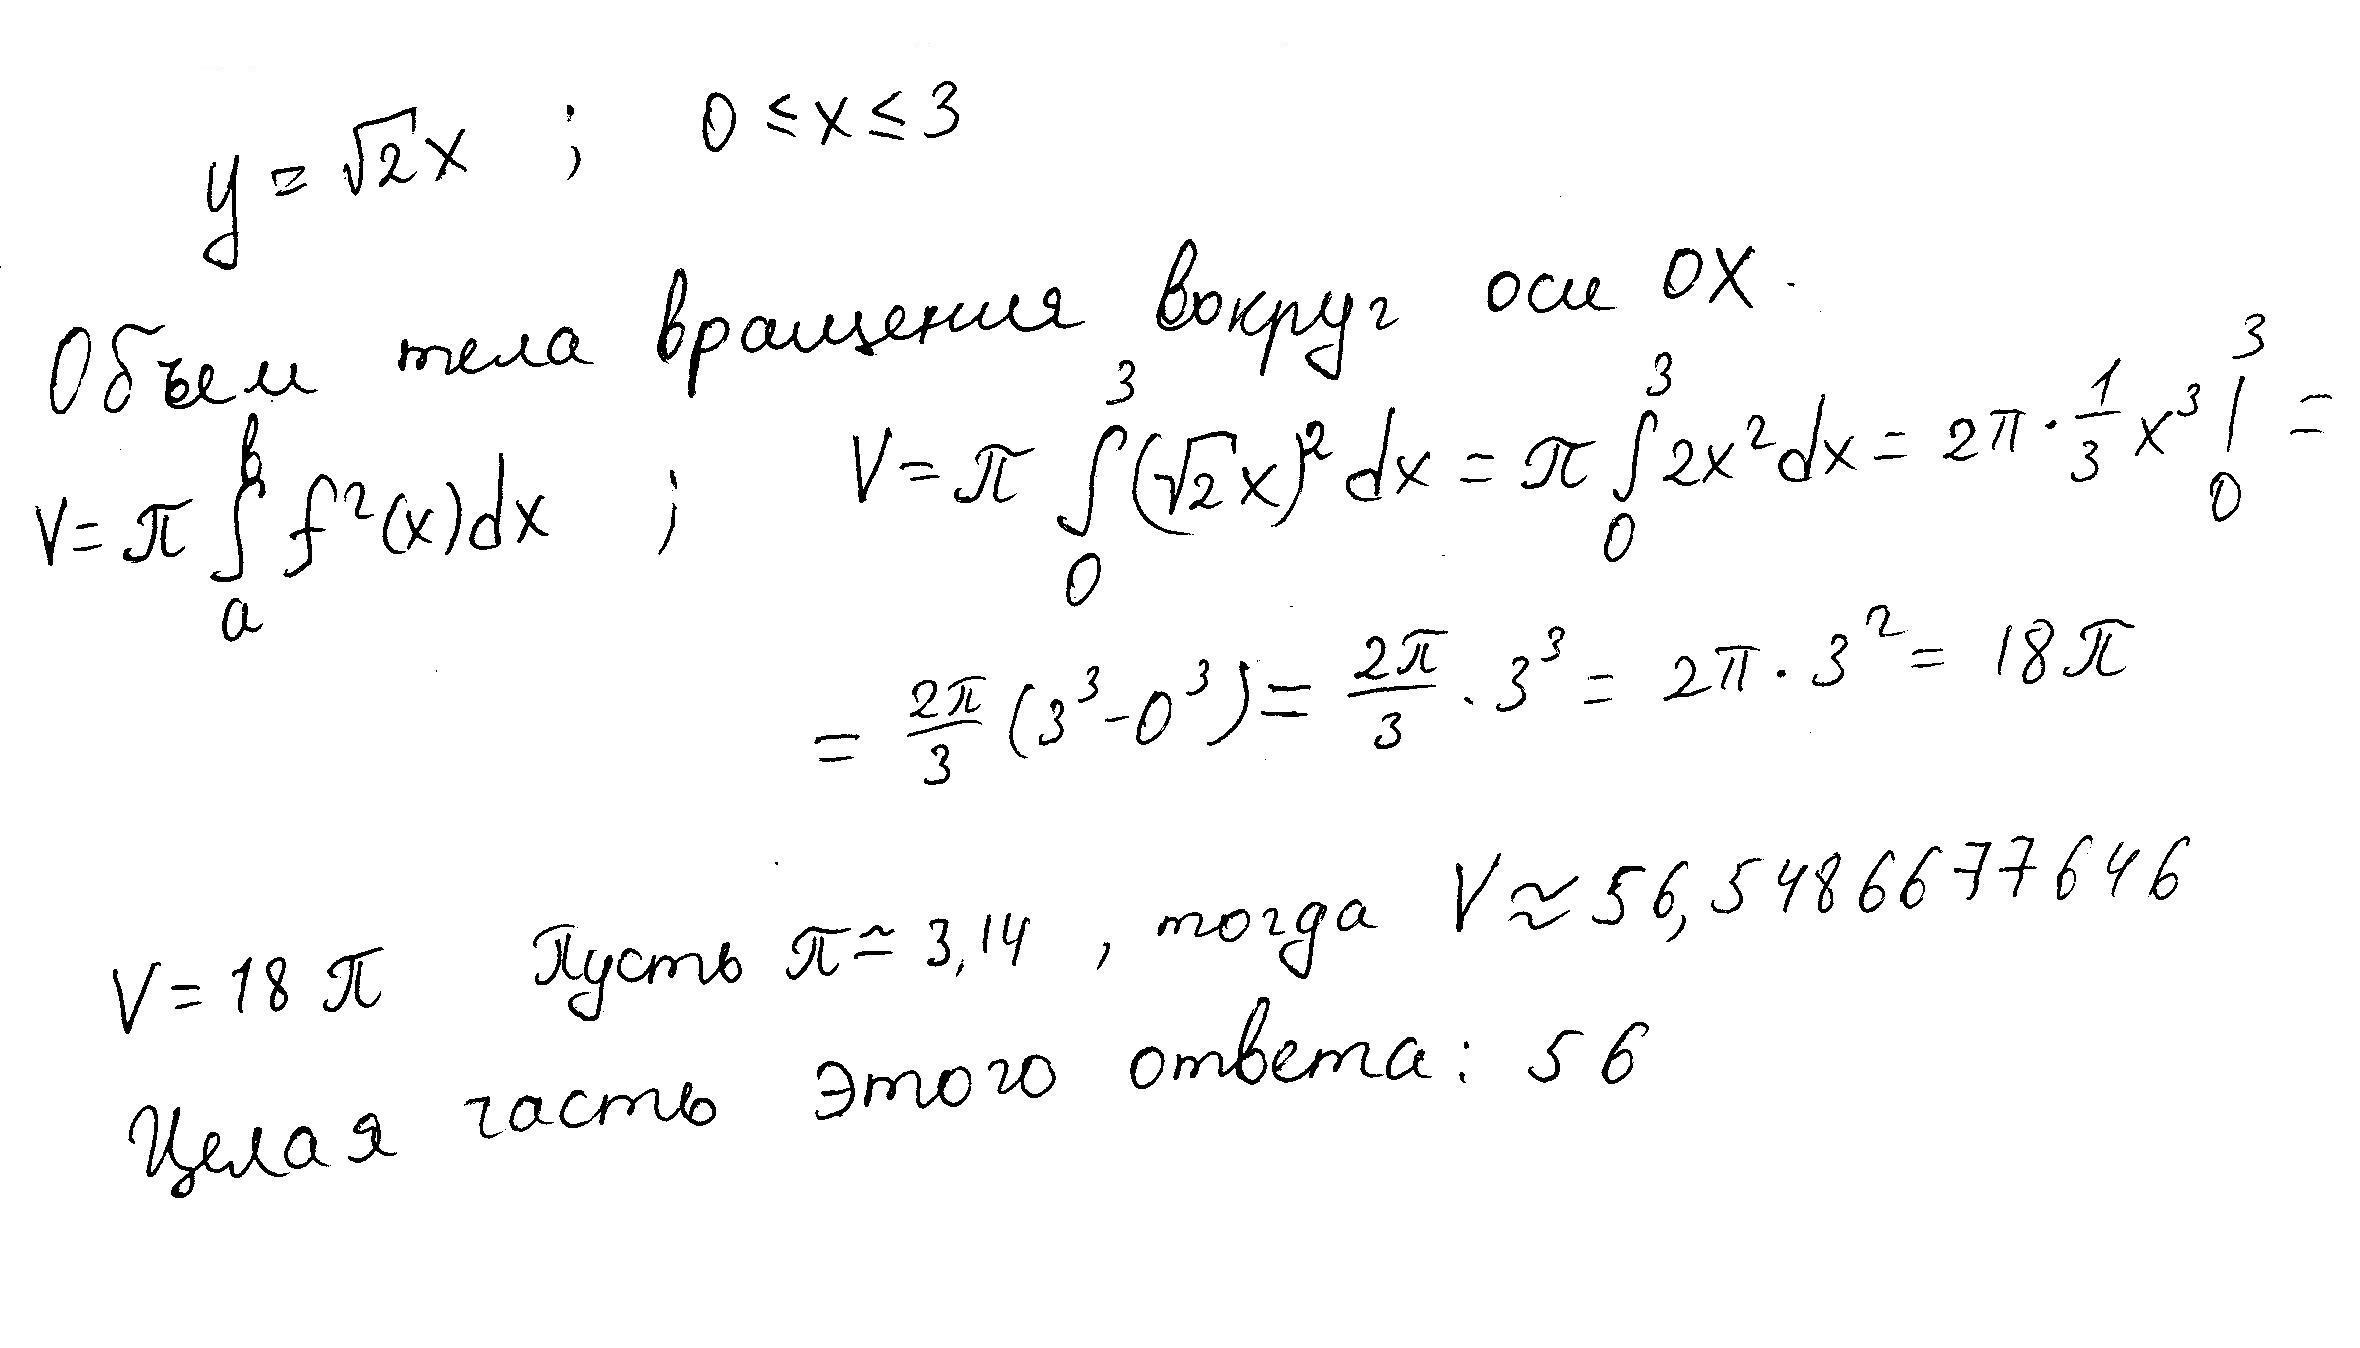 y = √2x ; 0 ≤ x ≤ 3
Объем тела вращения вокруг оси OX.
V = π ∫ₐᵇ f²(x)dx ; V = π ∫₀³ (√2x)² dx = π ∫₀³ 2x² dx = 2π · 1/3 x³ |₀³ =
= 2π/3 (3³ - 0³) = 2π/3 · 3³ = 2π · 3² = 18π
V = 18π Пусть π ≃ 3,14 , тогда V ≈ 56,5486677646
Целая часть этого ответа: 56